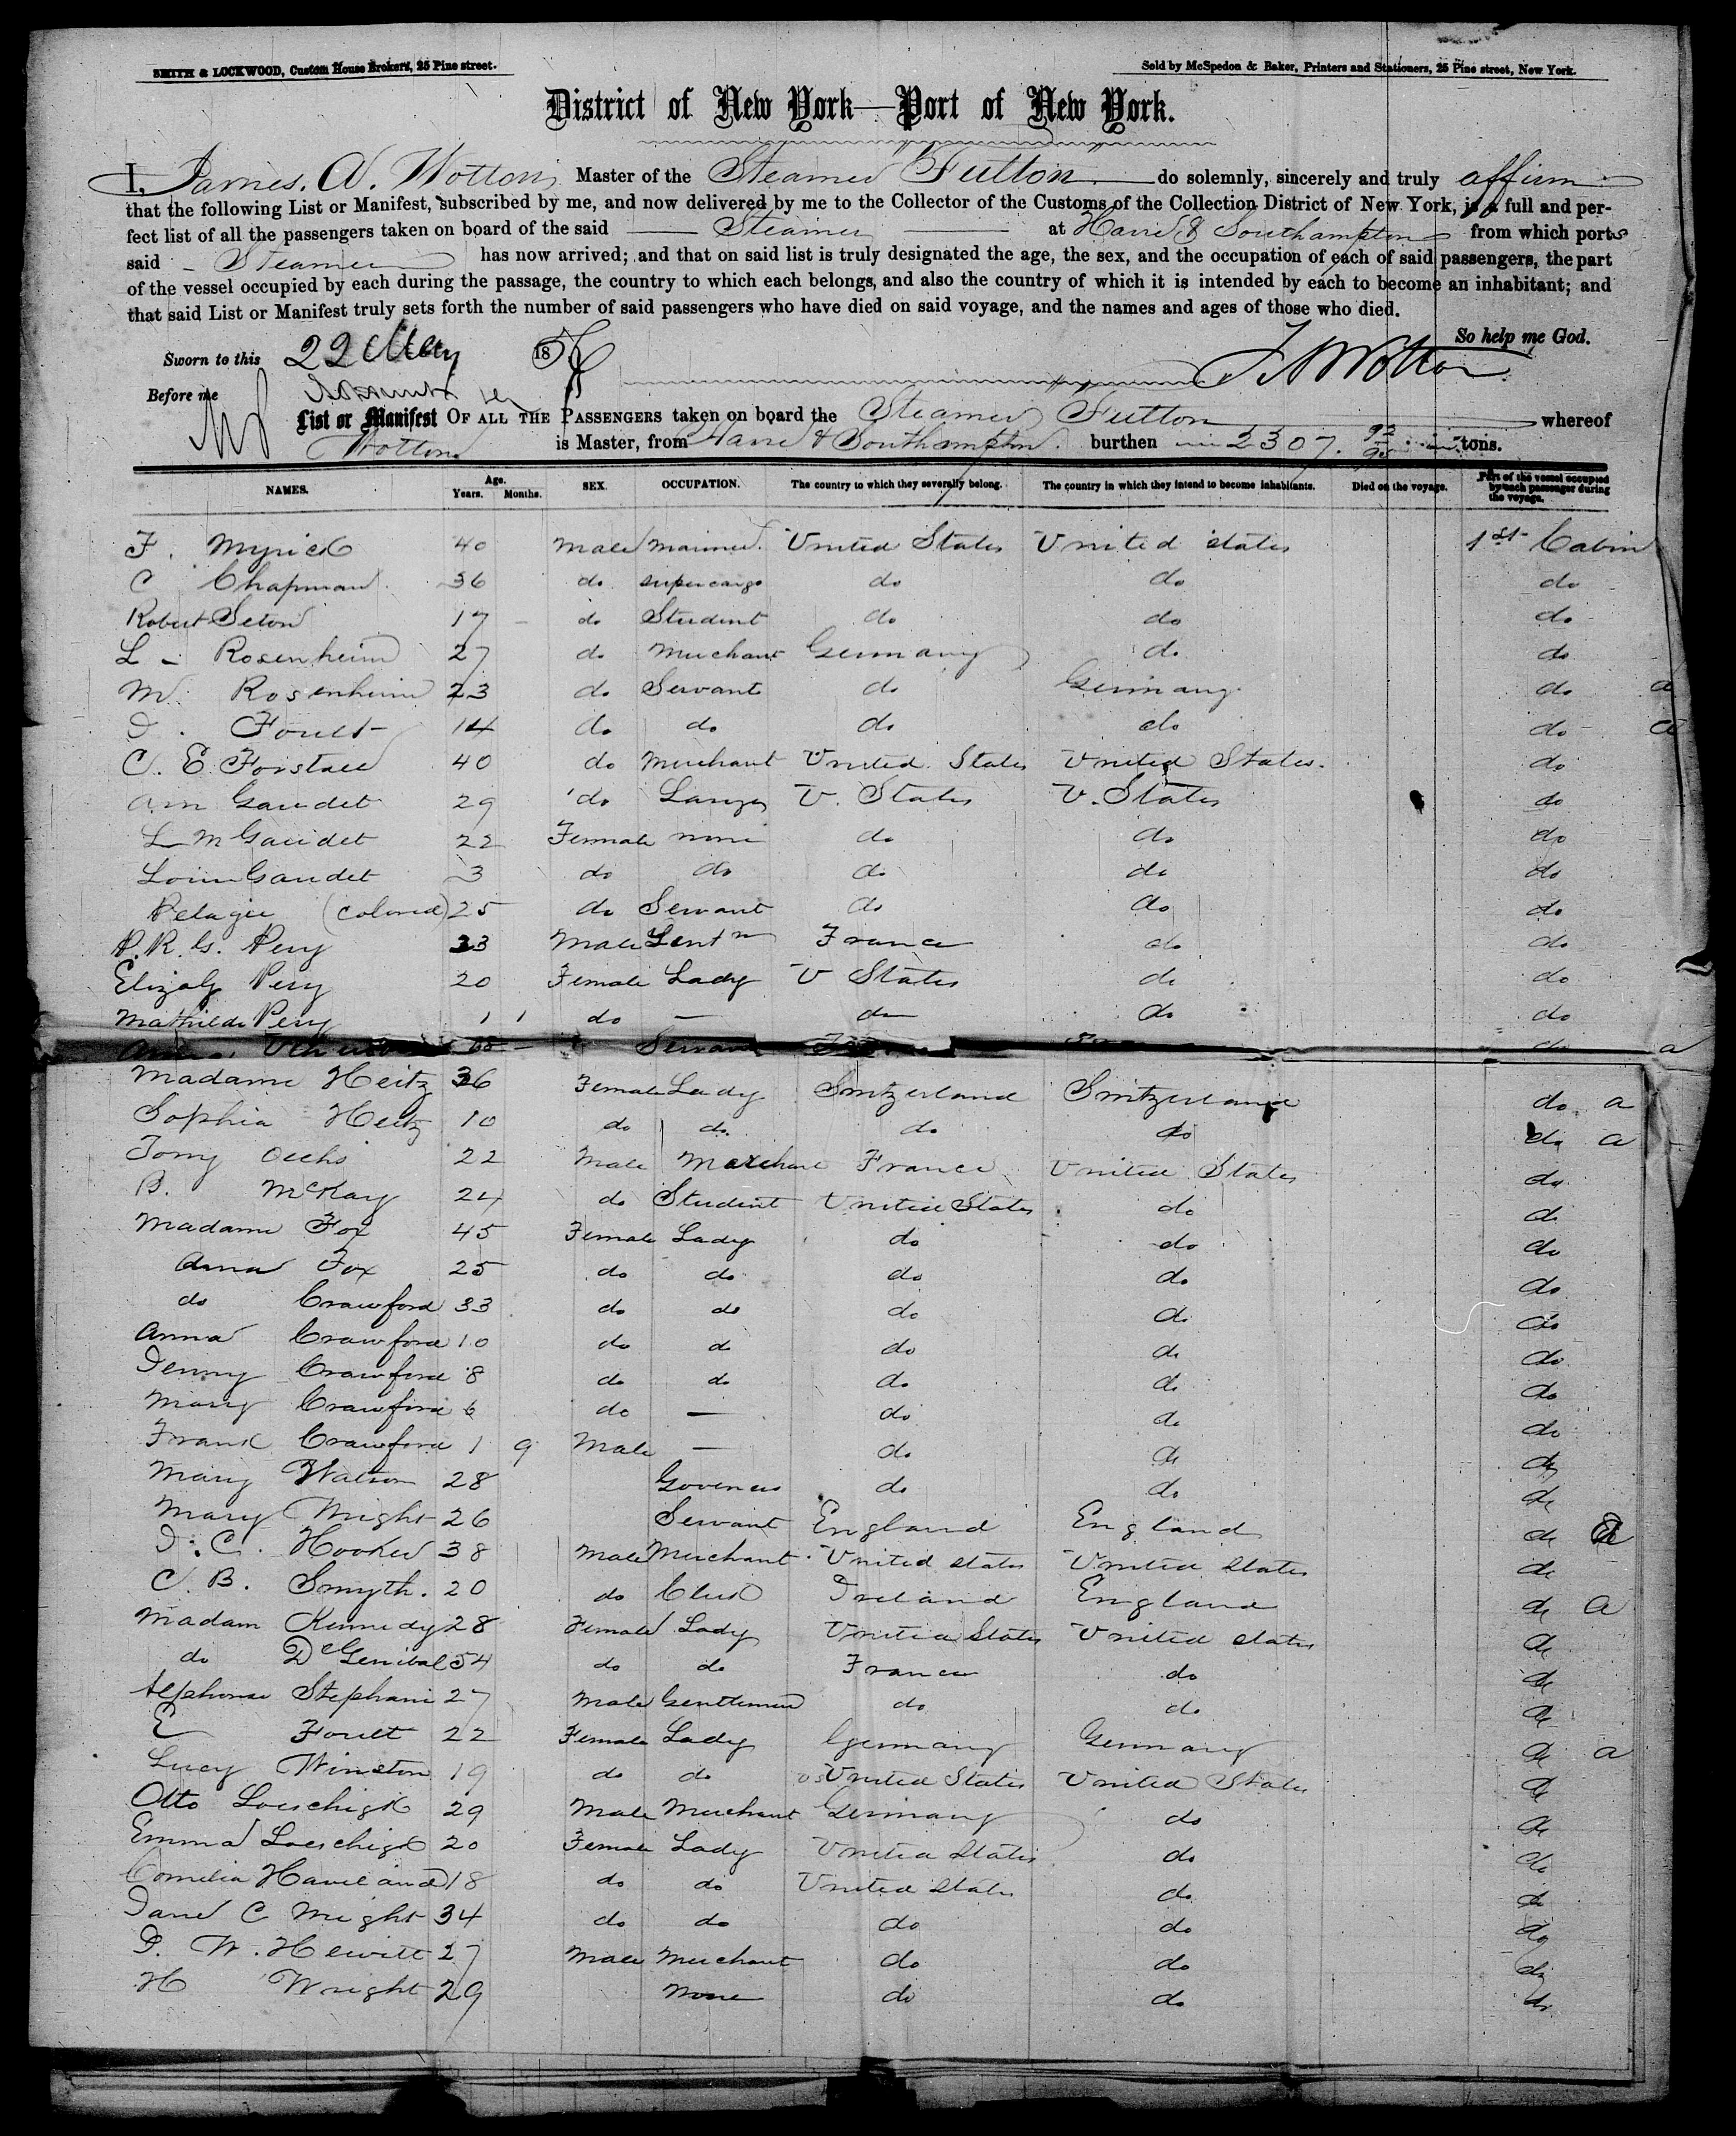 SMITH & LOCKWOOD, Custom House Brokers, 25 Pine street.
Sold by McSpedon & Baker, Printers and Stationers, 25 Pine street, New York.
District of New York—Port of New York.
I, James. A. Wotton, Master of the Steamer Fulton do solemnly, sincerely and truly affirm
that the following List or Manifest, subscribed by me, and now delivered by me to the Collector of the Customs of the Collection District of New York, is a full and per-
fect list of all the passengers taken on board of the said Steamer at Havre & Southampton from which ports
said Steamer has now arrived; and that on said list is truly designated the age, the sex, and the occupation of each of said passengers, the part
of the vessel occupied by each during the passage, the country to which each belongs, and also the country of which it is intended by each to become an inhabitant; and
that said List or Manifest truly sets forth the number of said passengers who have died on said voyage, and the names and ages of those who died.
So help me God.
Sworn to this 22 May 18 J A Wotton
Before me
List or Manifest OF ALL THE PASSENGERS taken on board the Steamer Fulton whereof
Wotton is Master, from Havre & Southampton burthen 2307. 92/95 tons.
NAMES. Age. Years. Months. SEX. OCCUPATION. The country to which they severally belong. The country in which they intend to become inhabitants. Died on the voyage. Part of the vessel occupied by each passenger during the voyage.
F. Myrick 40 Male Mariner. United States United States 1st Cabin
C Chapman 36 do supercargo do do do
Robert Seton 17 do Student do do do
L Rosenheim 27 do Merchant Germany do do
M. Rosenheim 23 do Servant do Germany do a
Foult 14 do do do do do a
C. E. Forstall 40 do Merchant United States United States. do
Gaudet 29 do U. States U. States do
L M Gaudet 22 Female none do do do
Gaudet 3 do do do do do
Pelagie (colored) 25 do Servant do do do
P. R. G. Pery 33 Male Gentn France do do
Pery 20 Female Lady U States do do
Mathilde Pery 1 1 do — do do do
Servant do a
Madame Heitz 36 Female Lady Switzerland Switzerland do a
Sophia Heitz 10 do do do do do a
Tony Ochs 22 Male Merchant France United States do
B. McKay 24 do Student United States do do
Madame Fox 45 Female Lady do do do
Anna Fox 25 do do do do do
do Crawford 33 do do do do do
Anna Crawford 10 do do do do do
Jenny Crawford 8 do do do do do
Mary Crawford 6 do — do do do
Frank Crawford 1 9 Male — do do do
Mary Watson 28 Governess do do do
Mary Wright 26 Servant England England do a
J. C. Hooker 38 Male Merchant United States United States do
C. B. Smyth. 20 do Clerk Ireland England do a
Madam Kennedy 28 Female Lady United States United States do
do De 54 do do France do do
Alphonse Stephani 27 Male Gentleman do do do
E Foult 22 Female Lady Germany Germany do a
Lucy Winston 19 do do United States United States do
Otto Loeschigk 29 Male Merchant Germany do do
Emma Loeschigk 20 Female Lady United States do do
Cornelia Haviland 18 do do United States do do
Jane C Wright 34 do do do do do
W. Hewitt 27 Male Merchant do do do
H Wright 29 None do do do